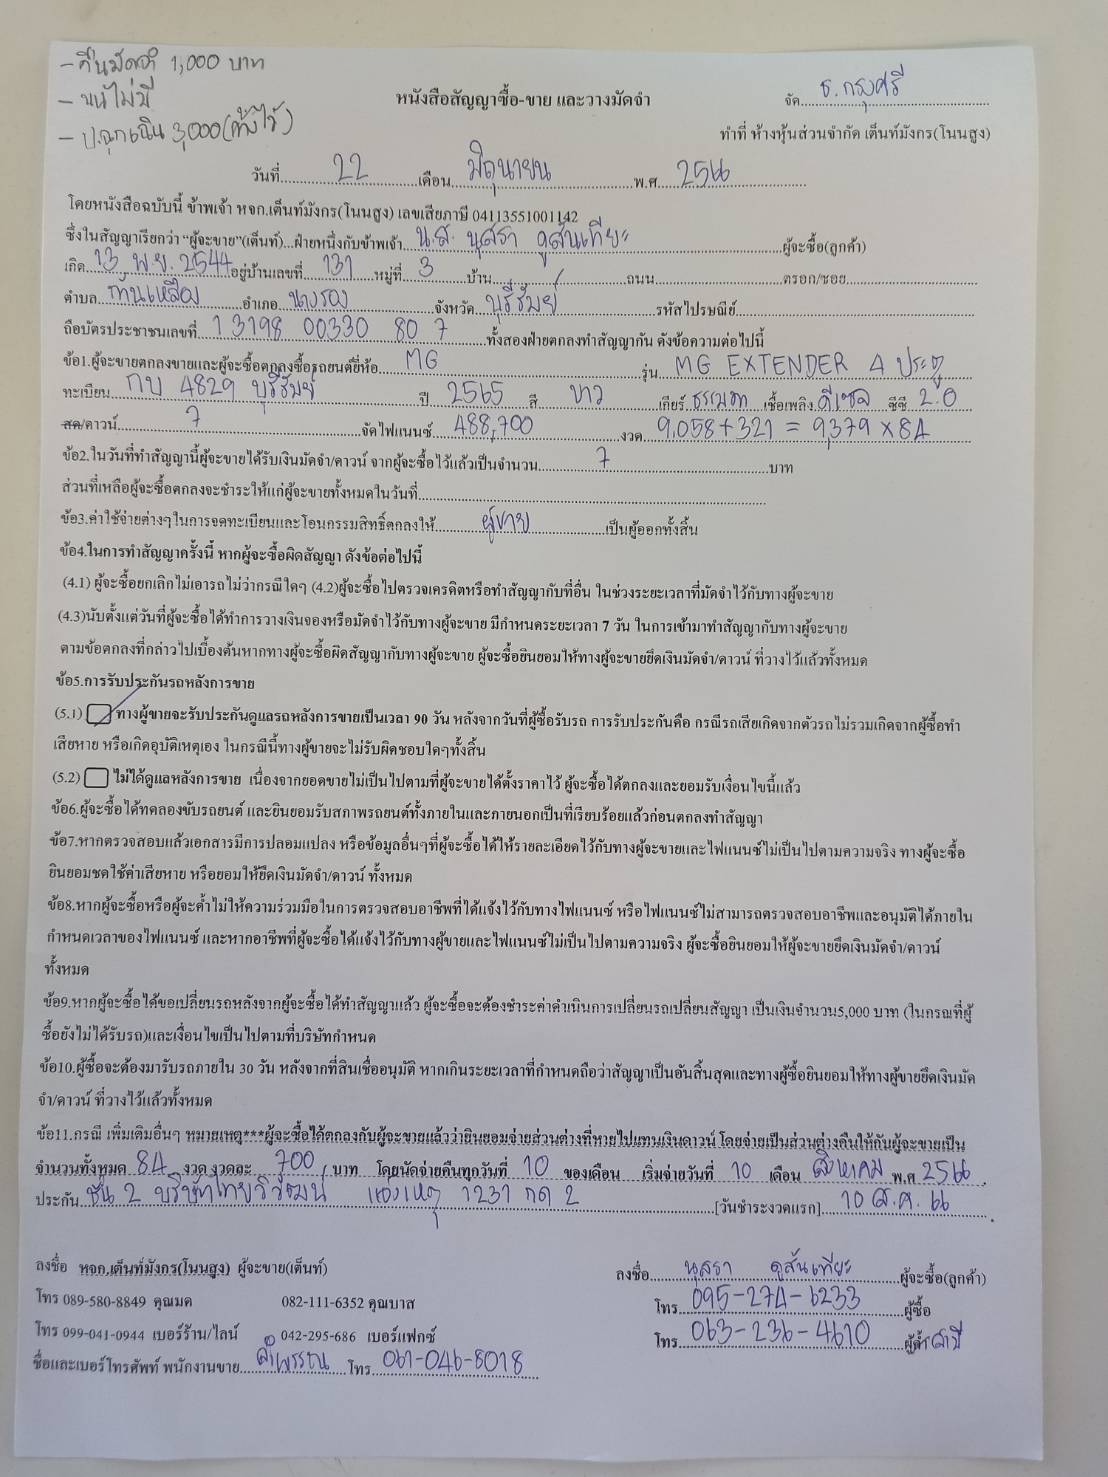 - คืนมัดจำ 1,000 บาท
- ขนไม่มี
- ป.ฉุกเฉิน 3,000 (ทั้งไร่)
หนังสือสัญญาซื้อ-ขาย และวางมัดจำ
จัด ธ.กรุงศรี
ทำที่ ห้างหุ้นส่วนจำกัด เต็นท์มังกร(โนนสูง)
วันที่ 22 เดือน มิถุนายน พ.ศ. 2566
โดยหนังสือฉบับนี้ ข้าพเจ้า หจก.เต็นท์มังกร(โนนสูง) เลขเสียภาษี 04113551001142
ซึ่งในสัญญาเรียกว่า "ผู้จะขาย"(เต็นท์)...ฝ่ายหนึ่งกับข้าพเจ้า น.ส. นุสรา ดูสันเทียะ ผู้จะซื้อ(ลูกค้า)
เกิด 13 พ.ย. 2544 อยู่บ้านเลขที่ 131 หมู่ที่ 3 บ้าน / ถนน ตรอก/ซอย
ตำบล ก้านเหลือง อำเภอ นางรอง จังหวัด บุรีรัมย์ รหัสไปรษณีย์
ถือบัตรประชาชนเลขที่ 1 3198 00330 80 7 ทั้งสองฝ่ายตกลงทำสัญญากัน ดังข้อความต่อไปนี้
ข้อ1.ผู้จะขายตกลงขายและผู้จะซื้อตกลงซื้อรถยนต์ยี่ห้อ MG รุ่น MG EXTENDER 4 ประตู
ทะเบียน กบ 4829 บุรีรัมย์ ปี 2565 สี ขาว เกียร์ ธรรมดา เชื้อเพลิง ดีเซล ซีซี 2.0
สด/ดาวน์ 7 จัดไฟแนนซ์ 488,700 งวด 9,058+321 = 9,379 x 84
ข้อ2.ในวันที่ทำสัญญานี้ผู้จะขายได้รับเงินมัดจำ/ดาวน์ จากผู้จะซื้อไว้แล้วเป็นจำนวน 7 บาท
ส่วนที่เหลือผู้จะซื้อตกลงจะชำระให้แก่ผู้จะขายทั้งหมดในวันที่
ข้อ3.ค่าใช้จ่ายต่างๆในการจดทะเบียนและโอนกรรมสิทธิ์ตกลงให้ ผู้ขาย เป็นผู้ออกทั้งสิ้น
ข้อ4.ในการทำสัญญาครั้งนี้ หากผู้จะซื้อผิดสัญญา ดังข้อต่อไปนี้
(4.1) ผู้จะซื้อยกเลิกไม่เอารถไม่ว่ากรณีใดๆ (4.2)ผู้จะซื้อไปตรวจเครดิตหรือทำสัญญากับที่อื่น ในช่วงระยะเวลาที่มัดจำไว้กับทางผู้จะขาย
(4.3)นับตั้งแต่วันที่ผู้จะซื้อได้ทำการวางเงินจองหรือมัดจำไว้กับทางผู้จะขาย มีกำหนดระยะเวลา 7 วัน ในการเข้ามาทำสัญญากับทางผู้จะขาย
ตามข้อตกลงที่กล่าวไปเบื้องต้นหากทางผู้จะซื้อผิดสัญญากับทางผู้จะขาย ผู้จะซื้อยินยอมให้ทางผู้จะขายยึดเงินมัดจำ/ดาวน์ ที่วางไว้แล้วทั้งหมด
ข้อ5.การรับประกันรถหลังการขาย
(5.1) ทางผู้ขายจะรับประกันดูแลรถหลังการขายเป็นเวลา 90 วัน หลังจากวันที่ผู้ซื้อรับรถ การรับประกันคือ กรณีรถเสียเกิดจากตัวรถไม่รวมเกิดจากผู้ซื้อทำ
เสียหาย หรือเกิดอุบัติเหตุเอง ในกรณีนี้ทางผู้ขายจะไม่รับผิดชอบใดๆทั้งสิ้น
(5.2) ไม่ได้ดูแลหลังการขาย เนื่องจากยอดขายไม่เป็นไปตามที่ผู้จะขายได้ตั้งราคาไว้ ผู้จะซื้อได้ตกลงและยอมรับเงื่อนไขนี้แล้ว
ข้อ6.ผู้จะซื้อได้ทดลองขับรถยนต์ และยินยอมรับสภาพรถยนต์ทั้งภายในและภายนอกเป็นที่เรียบร้อยแล้วก่อนตกลงทำสัญญา
ข้อ7.หากตรวจสอบแล้วเอกสารมีการปลอมแปลง หรือข้อมูลอื่นๆที่ผู้จะซื้อได้ให้รายละเอียดไว้กับทางผู้จะขายและไฟแนนซ์ไม่เป็นไปตามความจริง ทางผู้จะซื้อ
ยินยอมชดใช้ค่าเสียหาย หรือยอมให้ยึดเงินมัดจำ/ดาวน์ ทั้งหมด
ข้อ8.หากผู้จะซื้อหรือผู้จะค้ำไม่ให้ความร่วมมือในการตรวจสอบอาชีพที่ได้แจ้งไว้กับทางไฟแนนซ์ หรือไฟแนนซ์ไม่สามารถตรวจสอบอาชีพและอนุมัติได้ภายใน
กำหนดเวลาของไฟแนนซ์ และหากอาชีพที่ผู้จะซื้อได้แจ้งไว้กับทางผู้ขายและไฟแนนซ์ไม่เป็นไปตามความจริง ผู้จะซื้อยินยอมให้ผู้จะขายยึดเงินมัดจำ/ดาวน์
ทั้งหมด
ข้อ9.หากผู้จะซื้อได้ขอเปลี่ยนรถหลังจากผู้จะซื้อได้ทำสัญญาแล้ว ผู้จะซื้อจะต้องชำระค่าดำเนินการเปลี่ยนรถเปลี่ยนสัญญา เป็นเงินจำนวน5,000 บาท (ในกรณีที่ผู้
ซื้อยังไม่ได้รับรถ)และเงื่อนไขเป็นไปตามที่บริษัทกำหนด
ข้อ10.ผู้ซื้อจะต้องมารับรถภายใน 30 วัน หลังจากที่สินเชื่ออนุมัติ หากเกินระยะเวลาที่กำหนดถือว่าสัญญาเป็นอันสิ้นสุดและทางผู้ซื้อยินยอมให้ทางผู้ขายยึดเงินมัด
จำ/ดาวน์ ที่วางไว้แล้วทั้งหมด
ข้อ11.กรณี เพิ่มเติมอื่นๆ หมายเหตุ***ผู้จะซื้อได้ตกลงกับผู้จะขายแล้วว่ายินยอมจ่ายส่วนต่างที่หายไปแทนเงินดาวน์ โดยจ่ายเป็นส่วนต่างคืนให้กับผู้จะขายเป็น
จำนวนทั้งหมด 84 งวด งวดละ 700 บาท โดยนัดจ่ายคืนทุกวันที่ 10 ของเดือน เริ่มจ่ายวันที่ 10 เดือน สิงหาคม พ.ศ 2566
ประกัน ชั้น 2 บริษัทไทยวิวัฒน์ แจ้งเหตุ 1231 กด 2 [วันชำระงวดแรก] 10 ส.ค. 66
ลงชื่อ หจก.เต็นท์มังกร(โนนสูง) ผู้จะขาย(เต็นท์)
ลงชื่อ นุสรา ดูสันเทียะ ผู้จะซื้อ(ลูกค้า)
โทร 089-580-8849 คุณมด 082-111-6352 คุณบาส
โทร 095-274-6233 ผู้ซื้อ
โทร 099-041-0944 เบอร์ร้าน/ไลน์ 042-295-686 เบอร์แฟกซ์
โทร 063-236-4610 ผู้ค้ำ สามี
ชื่อและเบอร์โทรศัพท์ พนักงานขาย ลำพรรณ โทร 061-046-8018